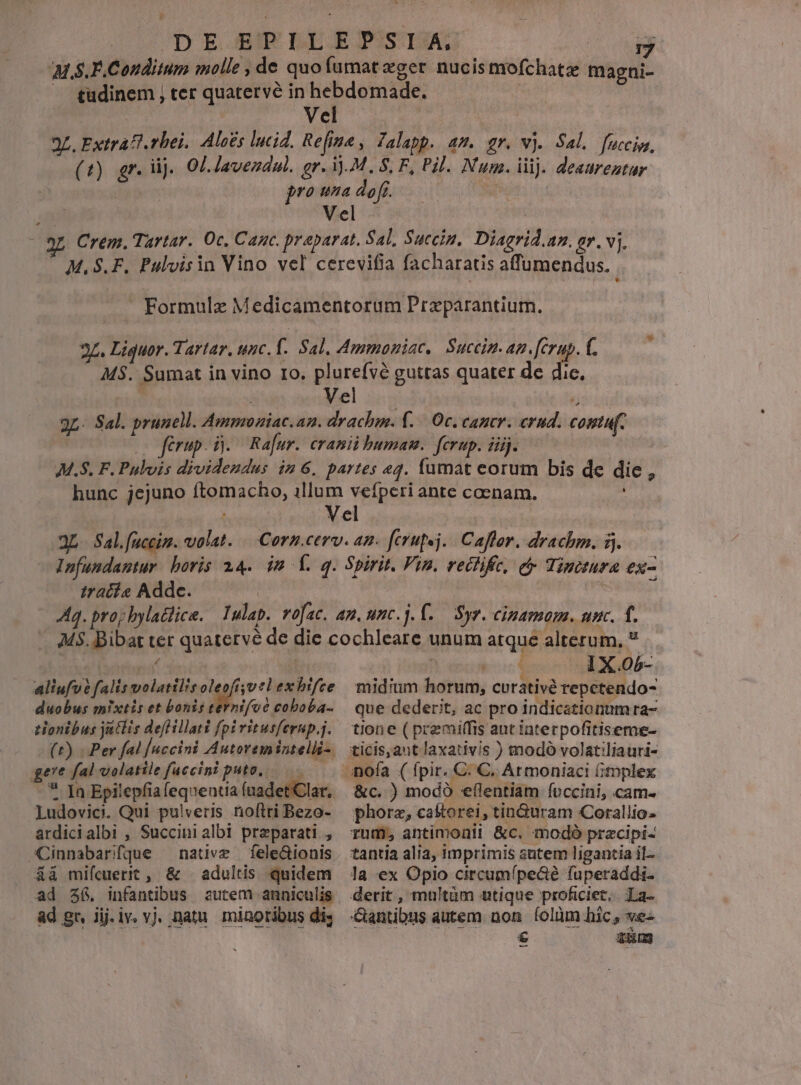 DE EPILEPSIA. 17
M.S.F. Conditum molle, de quo ſumat æger nucis moſchatæ magni-
tudinem, ter quatervè in hebdomade.
Vel
℞. Extract. rhei. Aloës lucid. Reſinæ, Ialapp. an. gr. vj. Sal. ſuccin.
(t) gr. iij. Ol. lavendul. gr. ij. M. S. F. Pil. Num. iiij. deaurentur
pro una doſi.
Vel
℞ Crem. Tartar. Oc. Canc. præparat. Sal. Succin. Diagrid. an. gr. vj.
M.S.F. Pulvis in Vino vel cereviſia ſacharatis aſſumendus.
Formulæ Medicamentorum Præparantium.
℞. Liquor. Tartar. unc. ſ. Sal. Ammoniac. Succin. an. ſcrup. ſ.
MS. Sumat in vino 10. plureſvè guttas quater de die.
Vel
℞. Sal. prunell. Ammoniac. an. drachm. ſ. Oc. cancr. crud. contuſ.
ſcrup. ij. Raſur. cranii human. ſcrup. iiij.
M.S.F. Pulvis dividendus in 6. partes æq. ſumat eorum bis de die,
hunc jejuno ſtomacho, illum veſperi ante cœnam.
Vel
℞ Sal. ſuccin. volat. Corn. cerv. an. ſcrup. j. Caſtor. drachm. ij.
Infundantur horis 24. in ſ. q. Spirit. Vin. rectific. & Tinctura ex-
tracta Adde.
Aq. prophylactica. Iulap. roſac. an. unc. j. ſ. Syr. cinamom. unc. ſ.
MS. Bibat ter quatervè de die cochleare unum atque alterum. u
IX. Ob-
aliuſvè ſalis volatilis oleoſi, vel ex hiſce
duobus mixtis et bonis terniſvè cohoba-
tionibus juſtis deſtillati ſpiritus ſcrup. j.
(t) Per ſal ſuccini Autorem intelli-
gere ſal volatile ſuccini puto.
u In Epilepſia ſequentia ſuadet Clar.
Ludovici. Qui pulveris noſtri Bezo-
ardici albi, Succini albi præparati,
Cinnabariſque nativæ ſelectionis
āā miſcuerit, & adultis quidem
ad 36. infantibus autem anniculis
ad gr. iij. iv. vj. natu minoribus di-
midium horum, curativè repetendo-
que dederit, ac pro indicationum ra-
tione (præmiſſis aut interpoſitis eme-
ticis, aut laxativis) modò volatilia uri-
noſa (ſpir. C. C. Armoniaci ſimplex
&c.) modò eſſentiam ſuccini, cam-
phoræ, caſtorei, tincturam Corallio-
rum, antimonii &c. modò præcipi-
tantia alia, imprimis autem ligantia il-
la ex Opio circumſpectè ſuperaddi-
derit, multùm utique proficiet. La-
ctantibus autem non ſolùm hîc, ve-
C rùm